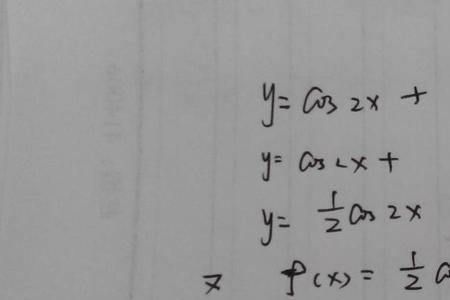 y = cos 2x +
y = cos 2x +
y = 1/2 cos 2x
f(x) = 1/2